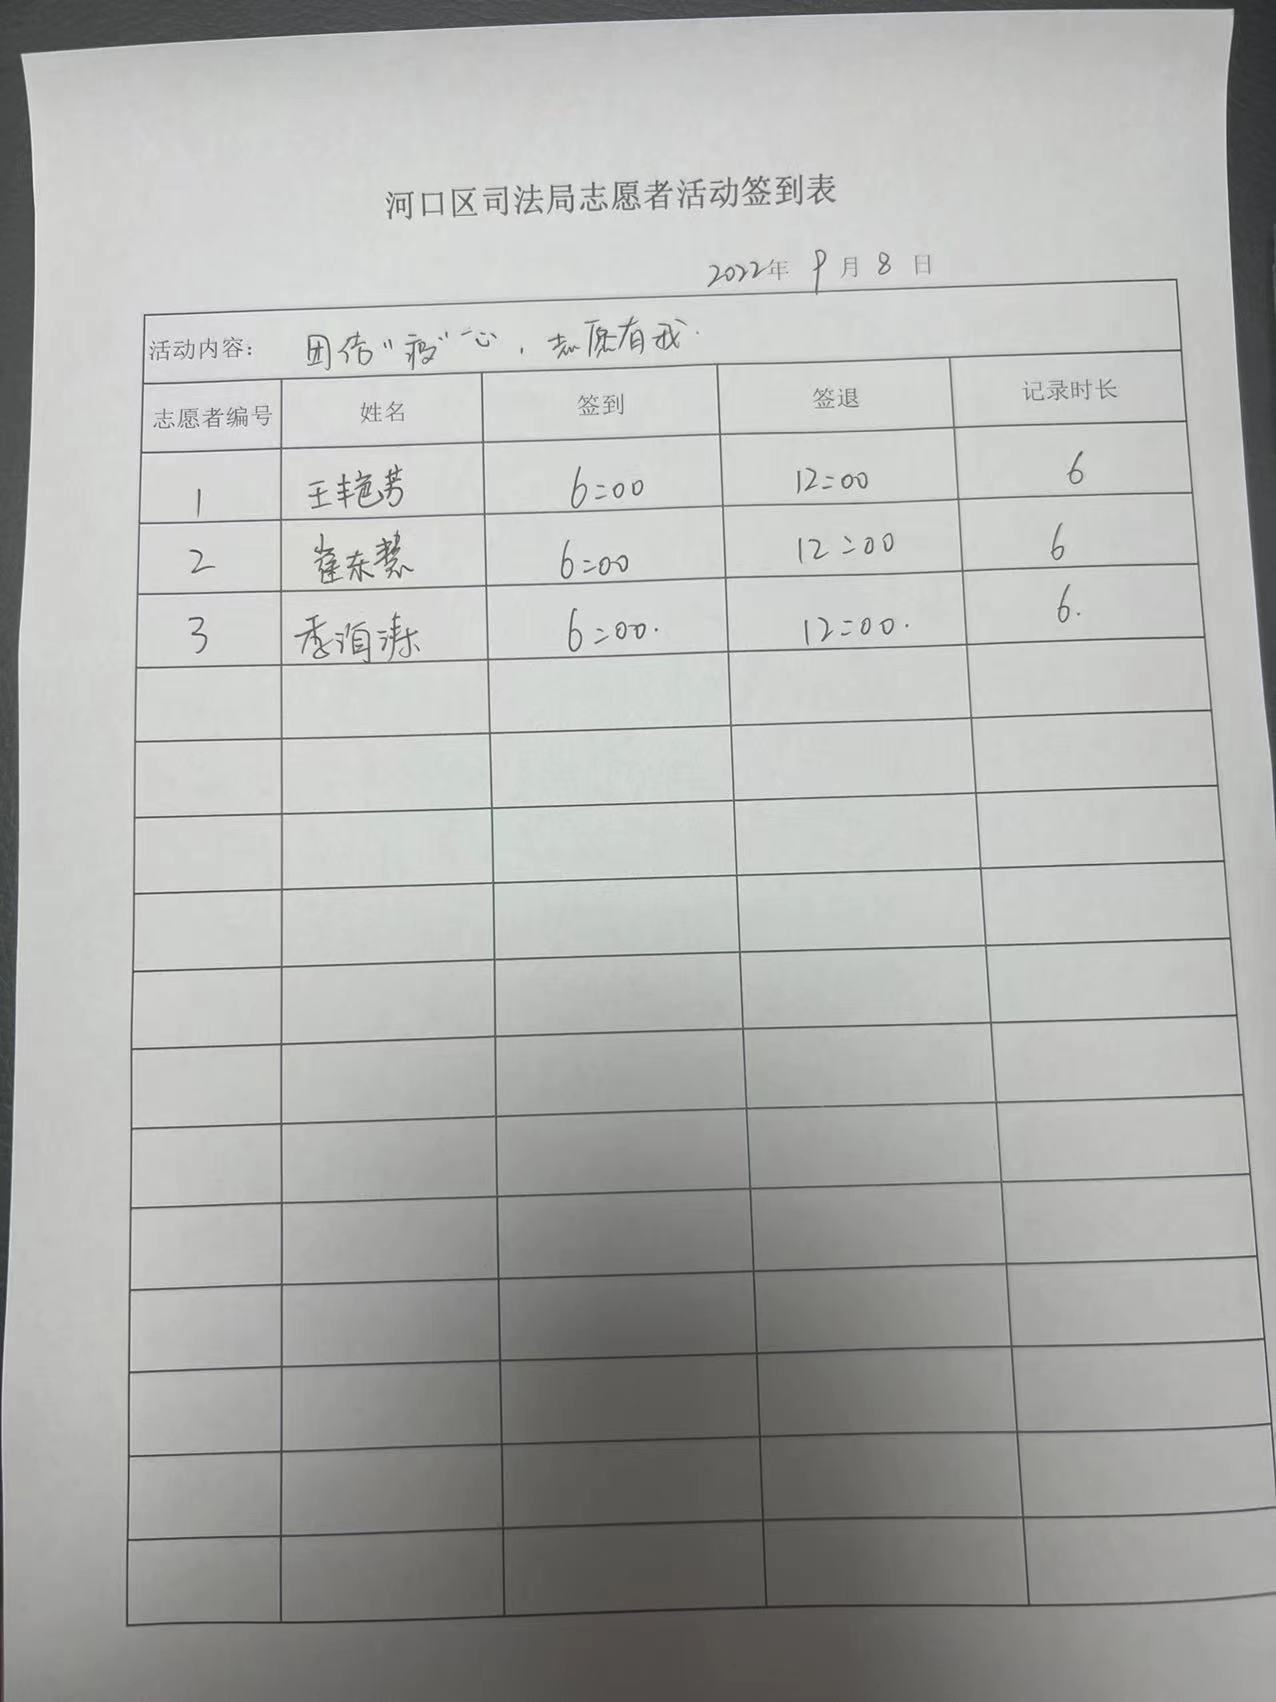 河口区司法局志愿者活动签到表
2022年 9 月 8 日
活动内容： 团结“疫”一心，志愿有我.
志愿者编号 姓名 签到 签退 记录时长
1 王艳芳 6:00 12:00 6
2 崔东慧 6:00 12:00 6
3 6:00. 12:00. 6.